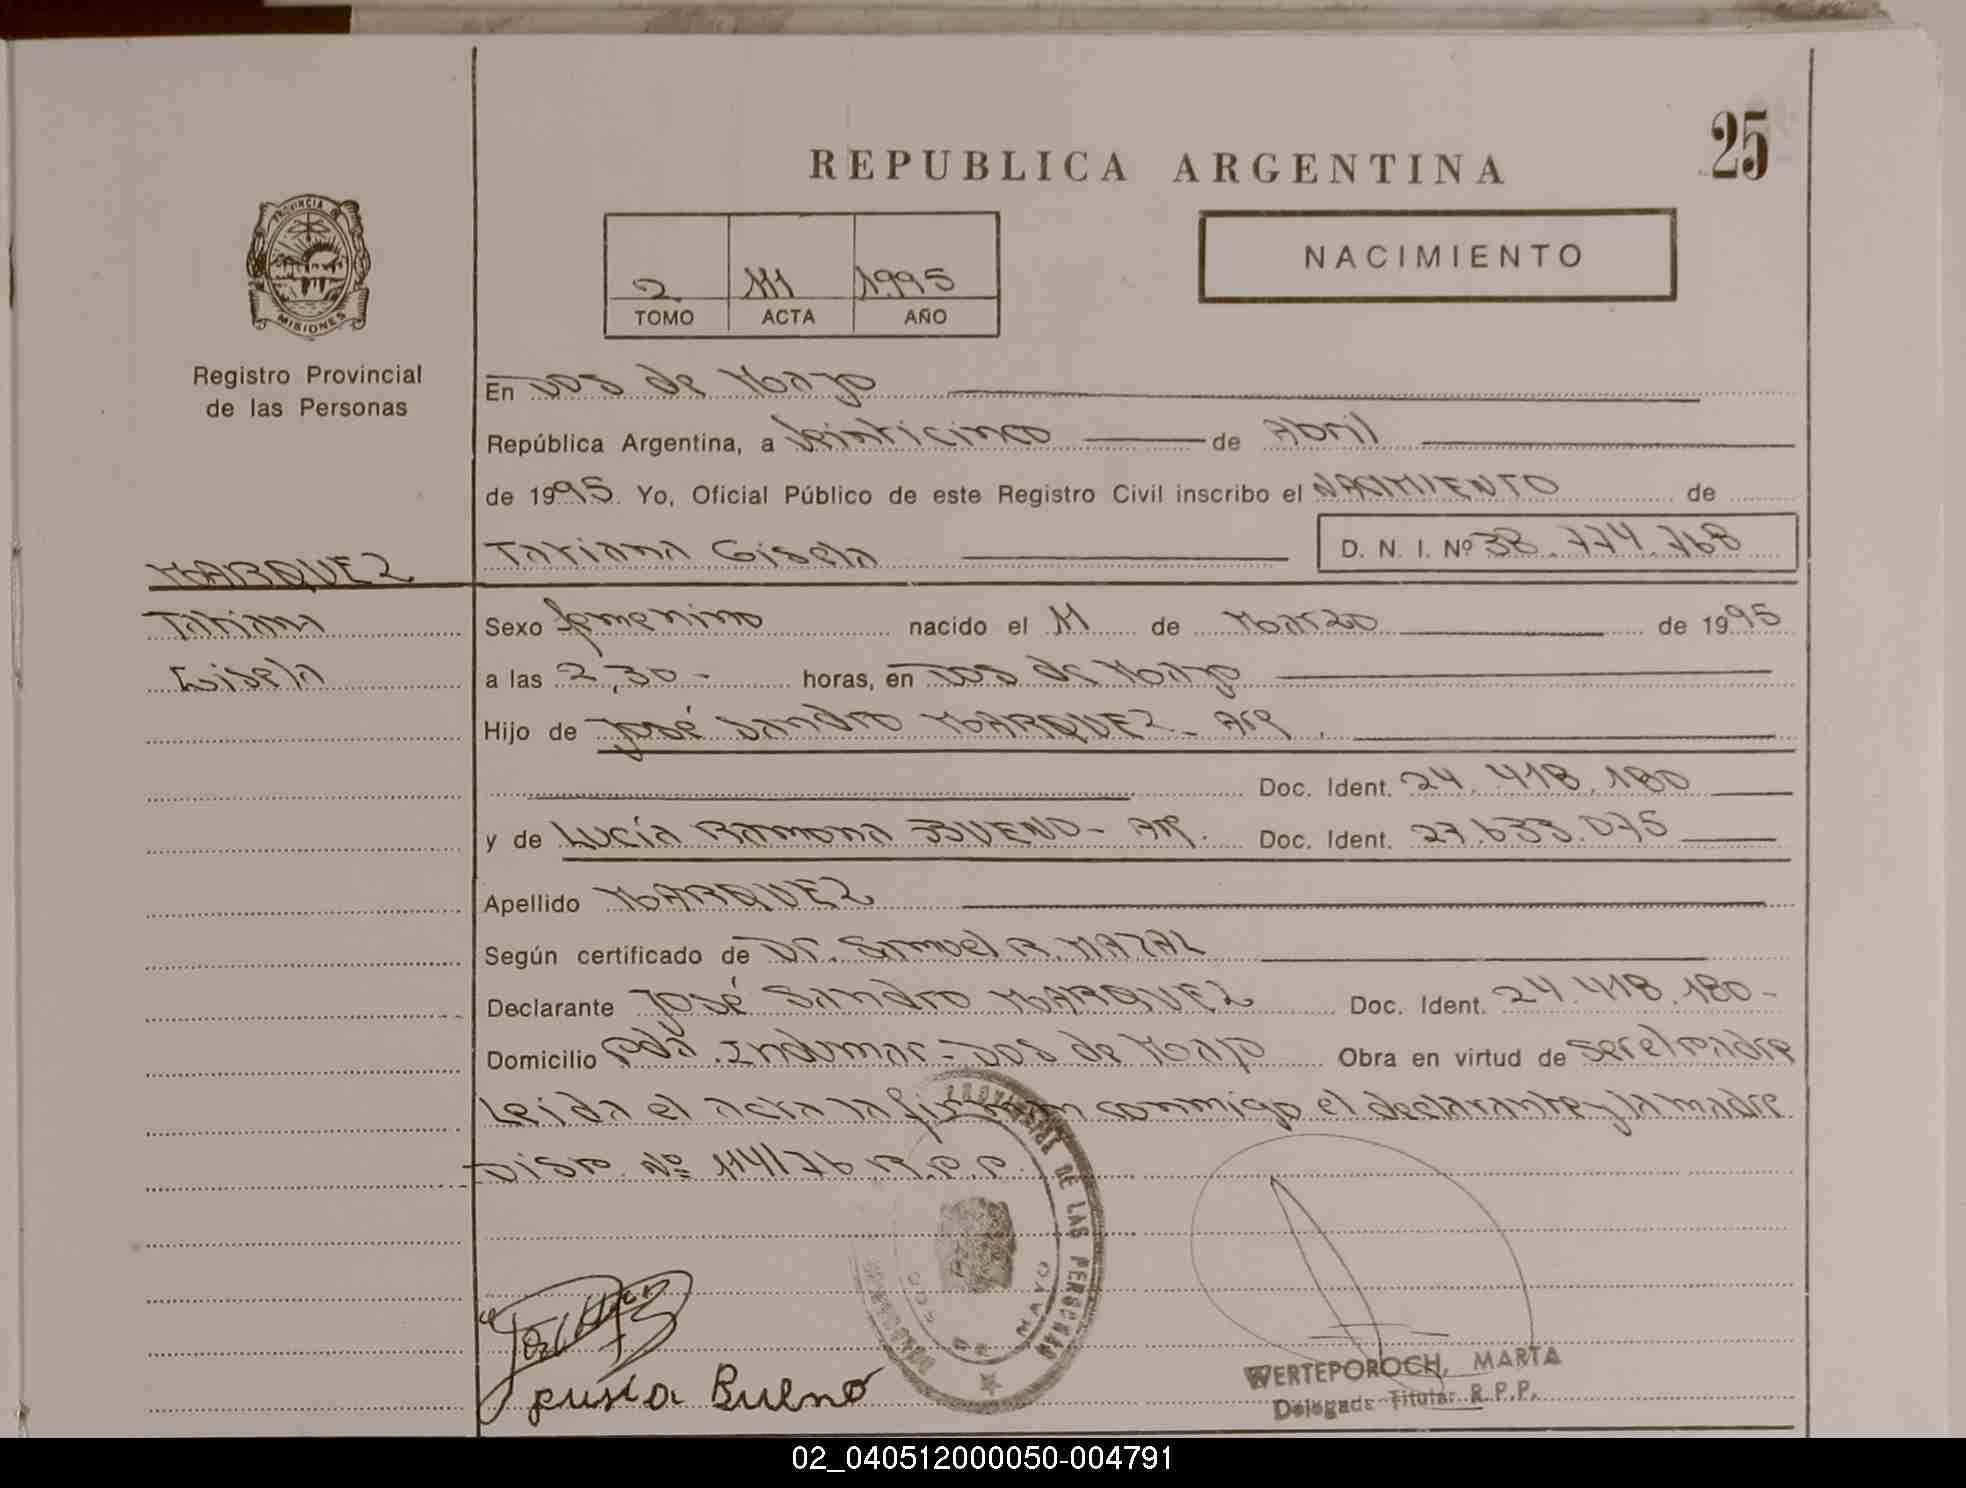 25
REPUBLICA ARGENTINA
PROVINCIA DE
MISIONES
Registro Provincial
de las Personas
2 111 1995
TOMO ACTA AÑO
NACIMIENTO
En Dos de Mayo
República Argentina, a Veinticinco de Abril
de 1995. Yo, Oficial Público de este Registro Civil inscribo el NACIMIENTO de
Tatiana Gisela D. N. I. Nº 38.774.768
MARQUEZ
Tatiana
Gisela
Sexo femenino nacido el 11 de Marzo de 1995
a las 2,30- horas, en Dos de Mayo
Hijo de José Sandro MARQUEZ- Arg.
Doc. Ident. 24.418.180
y de Lucía Ramona BUENO- Arg. Doc. Ident. 27.633.075
Apellido MARQUEZ
Según certificado de Dr. Samuel R. MAZAL
Declarante José Sandro MARQUEZ Doc. Ident. 24.418.180-
Domicilio Pda. Indumar-Dos de Mayo Obra en virtud de ser el padre
Leida el acta la firman conmigo el declarante y la madre
Disp. Nº 114/76 R.P.P.
DE LAS PERSONAS
DOS DE MAYO
Bueno
WERTEPOROCH, MARTA
Delegada Titular R.P.P.
02_040512000050-004791